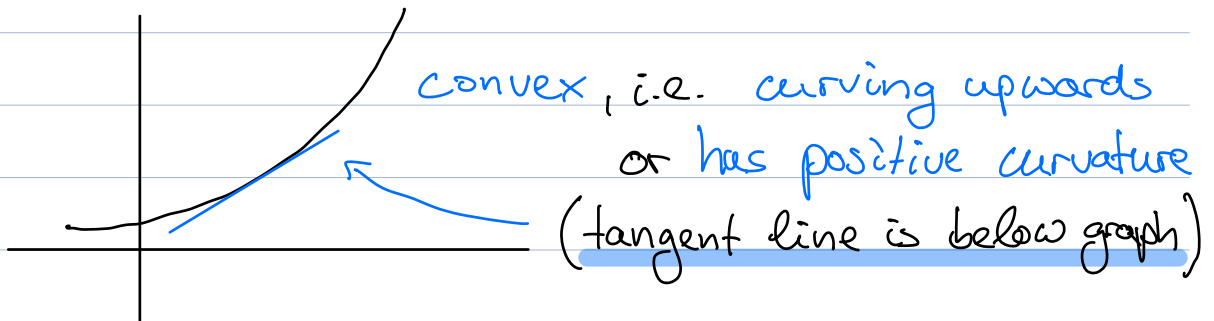 convex, i.e. curving upwards
or has positive curvature
(tangent line is below graph)